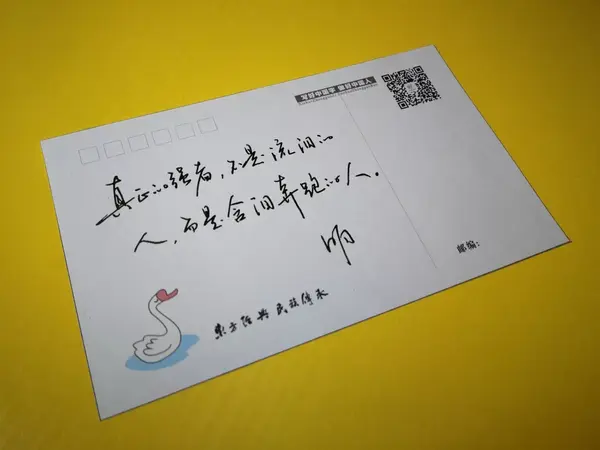 写好中国字 做好中国人
真正的强者，不是流泪的
人，而是含泪奔跑的人。
明
东方经典 民族传承
邮编：